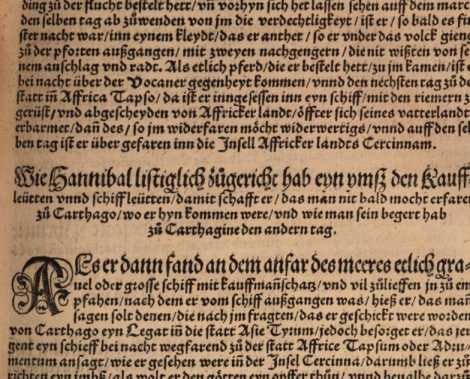 ding zů der flucht bestelt hett/ vñ vorhyn sich het lassen sehen auff dem marc
den selben tag ab zůwenden von jm die verdechtligkeyt / ist er / so bald es fin
ster nacht war / inn eynem kleydt / das er anthet / so er vnder das volck gieng
zů der pforten außgangen / mit zweyen nachgengern / die nit wißten von sei
nem anschlag vnd radt. Als etlich pferd / die er bestelt hett / zu jm kamen / ist e
bei nacht über der Vocaner gegenheyt kommen / vnnd den nechsten tag zů de
statt iñ Affrica Tapso / da ist er inngesessen inn eyn schiff / mit den riemern z
gerüst / vnd abgescheyden von Affricker landt / öffter sich seines vatterlandt
erbarmet / dañ des / so jm widerfaren möcht widerwertigs / vnnd auff den sel
ben tag ist er über gefaren inn die Insell Affricker landts Cercinnam.
Wie Hannibal listiglich zůgericht hab eyn ymß den Kauff-
leütten vnnd schiffleütten / damit schafft er / das man nit bald mocht erfaren
zů Carthago / wo er hyn kommen were / vnd wie man sein begert hab
zů Carthagine den andern tag.
ALs er dann fand an dem anfar des meeres etlich gra-
uel oder grosse schiff mit kauffmañschatz / vnd vil zůlieffen jn zů em
pfahen / nach dem er vom schiff außgangen was / hieß er / das man
sagen solt denen / die nach jm fragten / das er geschickt were worden
von Carthago eyn Legat iñ die statt Asie Tyrum / jedoch besorget er / das jer
gent eyn schieff bei nacht wegfarend zů der statt Affrice Tapsum oder Adru-
mentum ansagt / wie er gesehen were iñ der Insel Cercinna / darumb ließ er zů
richten eyn imbß / als wolt er den götten eyn opffer thůn / vnd